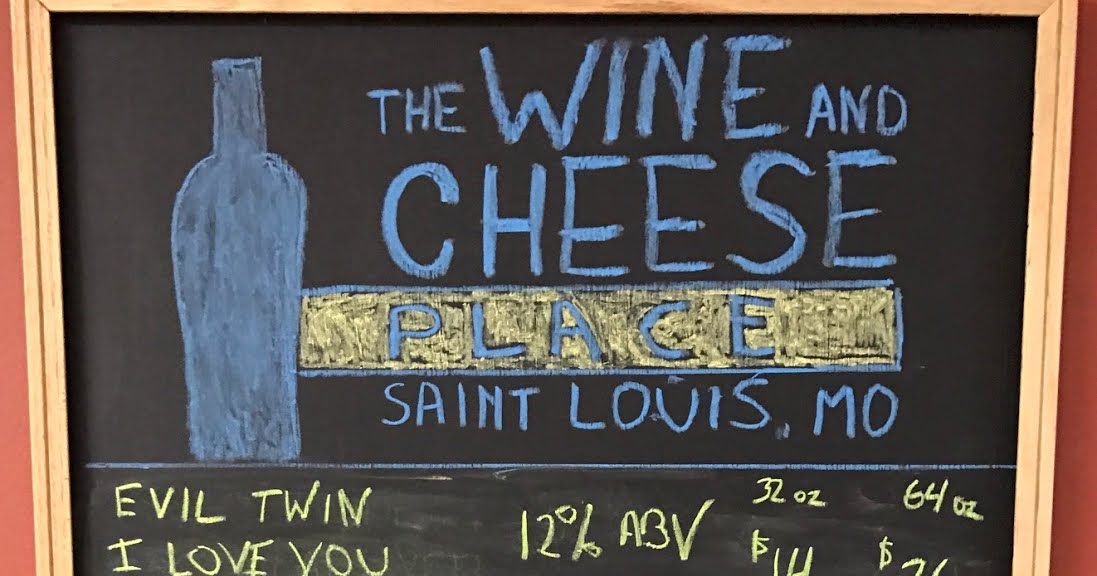 THE WINE AND
CHEESE
PLACE
SAINT LOUIS, MO
EVIL TWIN 12% ABV 32 oz 64 oz
I LOVE YOU $14